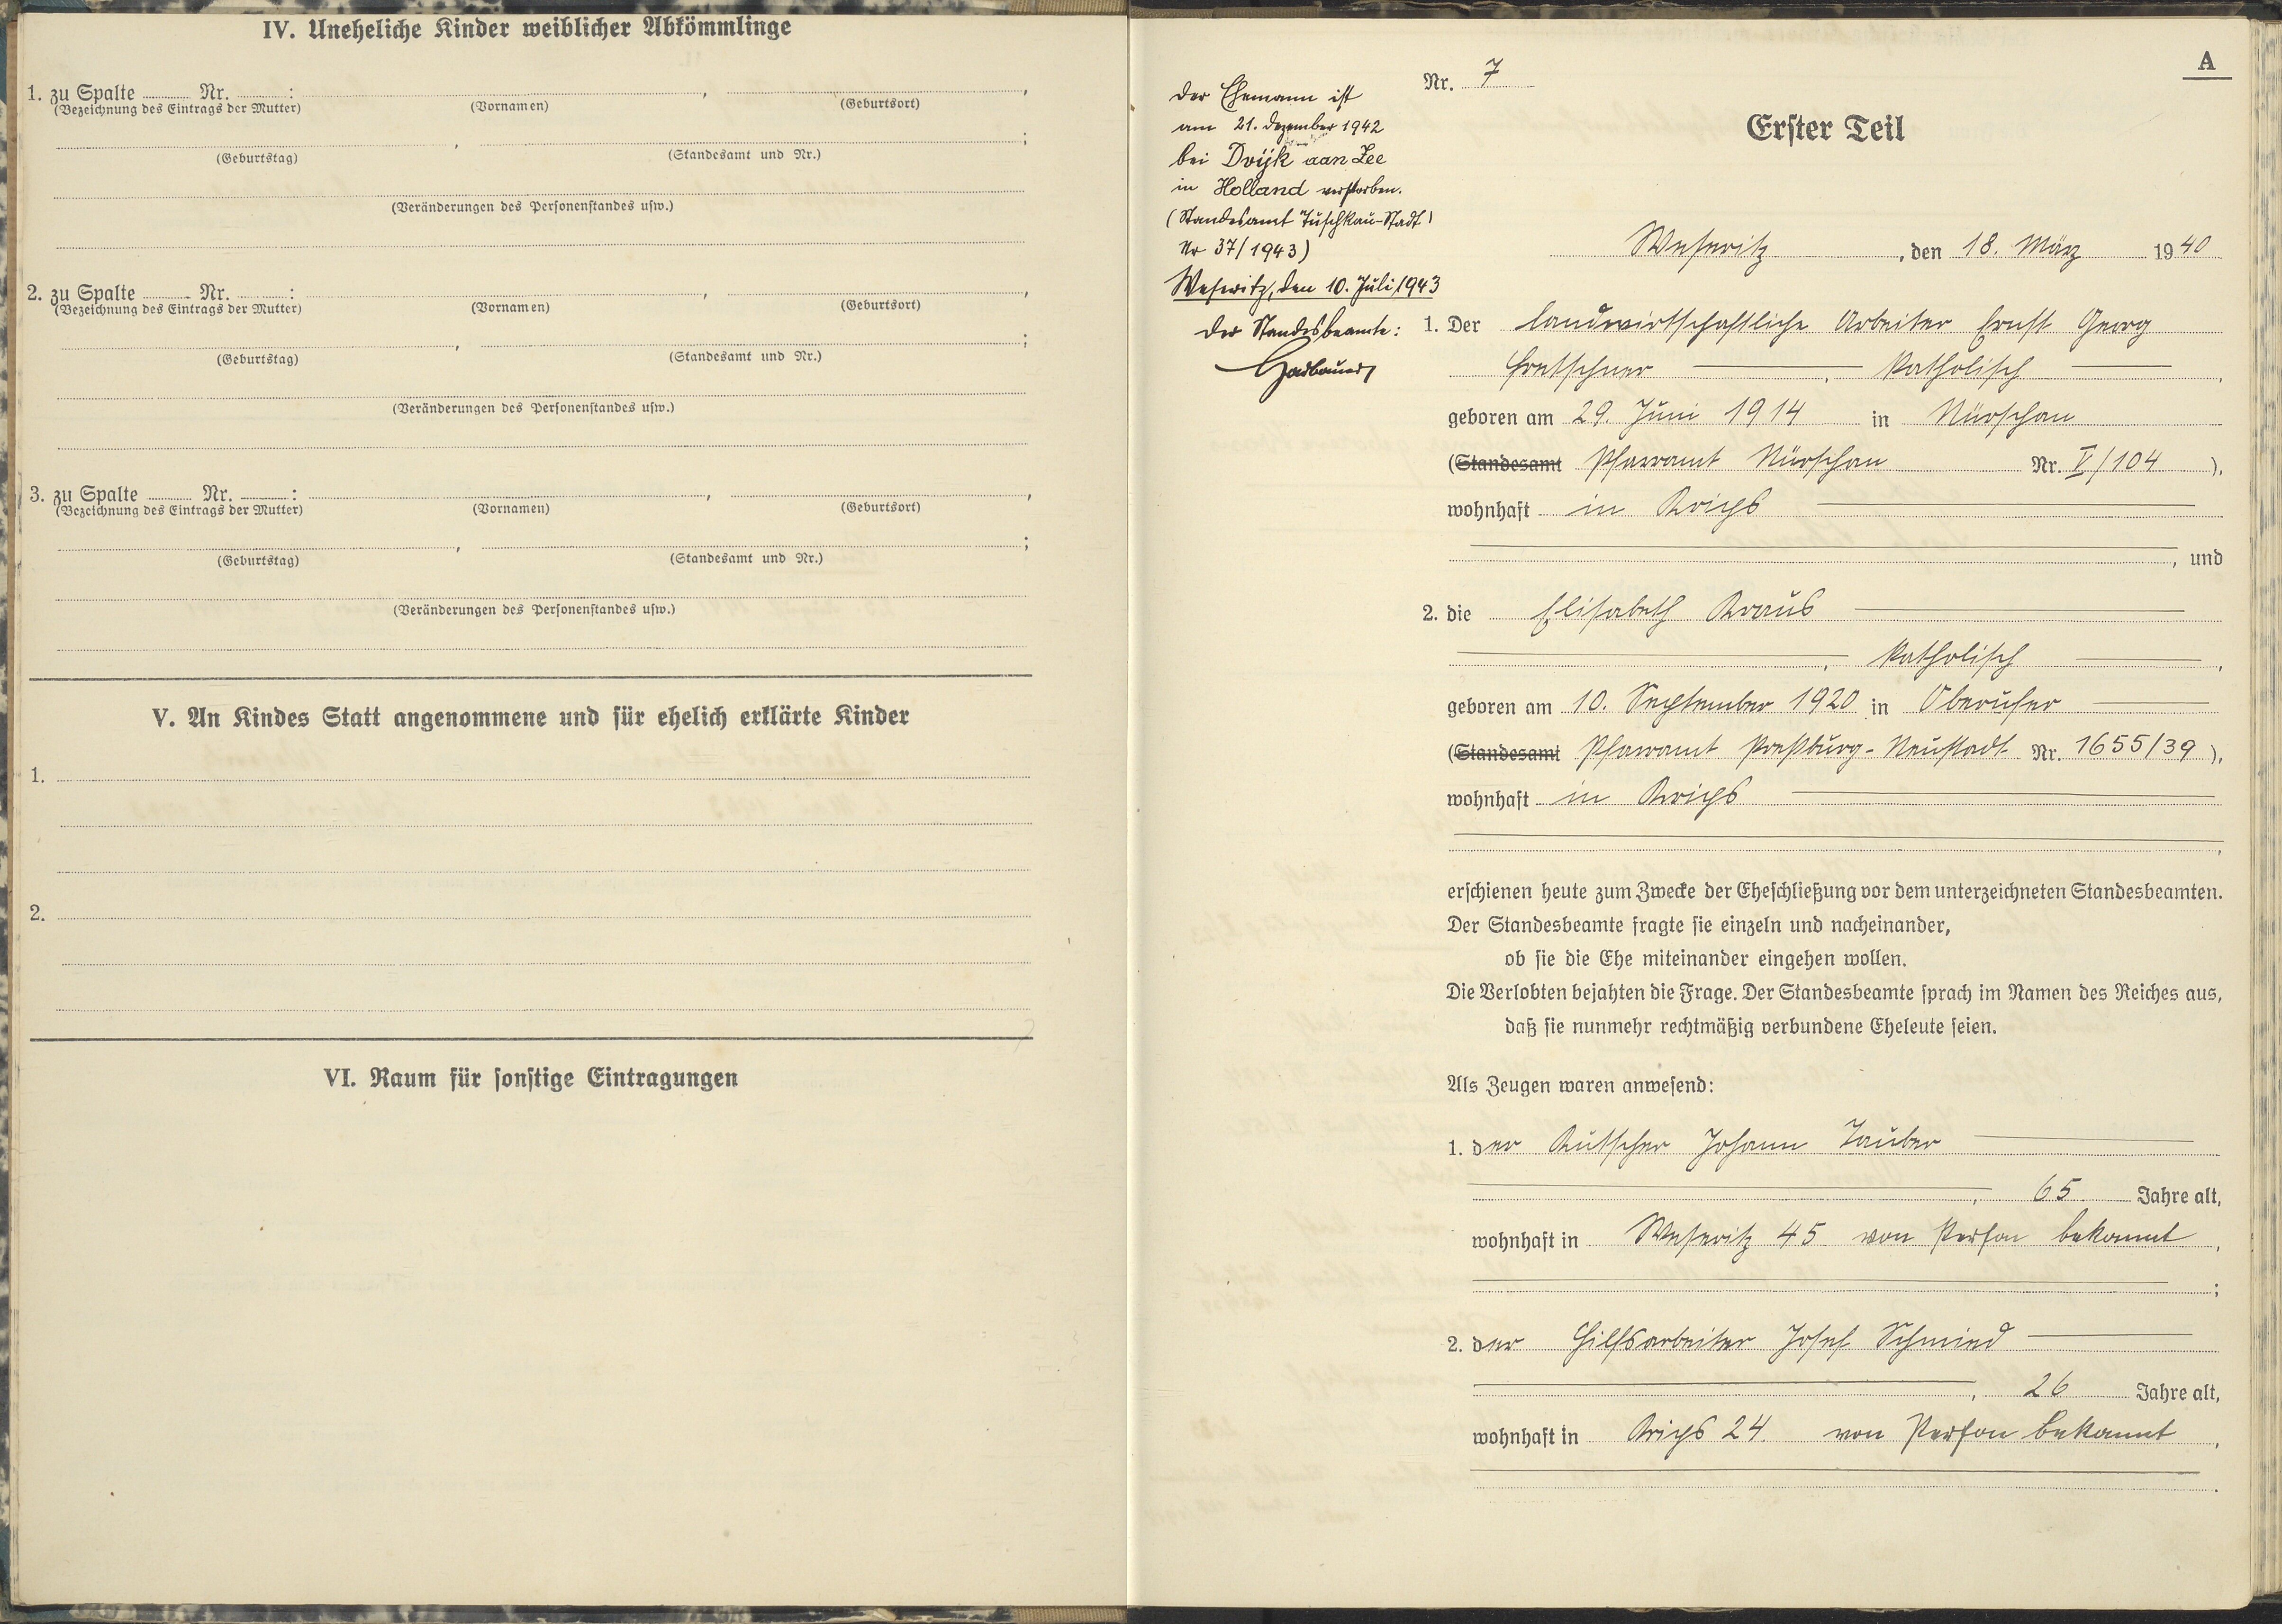 IV. Uneheliche Kinder weiblicher Abkömmlinge
1. zu Spalte ........ Nr. ........ :
(Bezeichnung des Eintrags der Mutter) (Vornamen) , (Geburtsort) ,
(Geburtstag) , (Standesamt und Nr.) ;
(Veränderungen des Personenstandes usw.)
2. zu Spalte ........ Nr. ........ :
(Bezeichnung des Eintrags der Mutter) (Vornamen) , (Geburtsort) ,
(Geburtstag) , (Standesamt und Nr.) ;
(Veränderungen des Personenstandes usw.)
3. zu Spalte ........ Nr. ........ :
(Bezeichnung des Eintrags der Mutter) (Vornamen) , (Geburtsort) ,
(Geburtstag) , (Standesamt und Nr.) ;
(Veränderungen des Personenstandes usw.)
V. An Kindes Statt angenommene und für ehelich erklärte Kinder
1.
2.
VI. Raum für sonstige Eintragungen
A
Nr. 7
Erster Teil
Der Ehemann ist
am 21. Dezember 1942
bei Dvijk aan Zee
in Holland verstorben.
(Standesamt Tuschkau-Stadt
Nr 37/1943)
Weseritz, den 10. Juli 1943
Der Standesbeamte:
Weseritz , den 18. März 1940
1. Der landwirtschaftliche Arbeiter Ernst Georg
katholisch ,
geboren am 29. Juni 1914 in Nürschan
(Standesamt Pfarramt Nürschan Nr. V/104 ),
wohnhaft in
, und
2. die Elisabeth Kraus
, katholisch ,
geboren am 10. September 1920 in Oberufer
(Standesamt Pfarramt Preßburg-Neustadt Nr. 1655/39 ),
wohnhaft in
,
erschienen heute zum Zwecke der Eheschließung vor dem unterzeichneten Standesbeamten.
Der Standesbeamte fragte sie einzeln und nacheinander,
ob sie die Ehe miteinander eingehen wollen.
Die Verlobten bejahten die Frage. Der Standesbeamte sprach im Namen des Reiches aus,
daß sie nunmehr rechtmäßig verbundene Eheleute seien.
Als Zeugen waren anwesend:
1. der Kutscher Johann Tauber
, 65 Jahre alt,
wohnhaft in Weseritz 45 von Person bekannt ,
;
2. der Hilfsarbeiter Josef Schmied
, 26 Jahre alt,
wohnhaft in 24. von Person bekannt ,
.